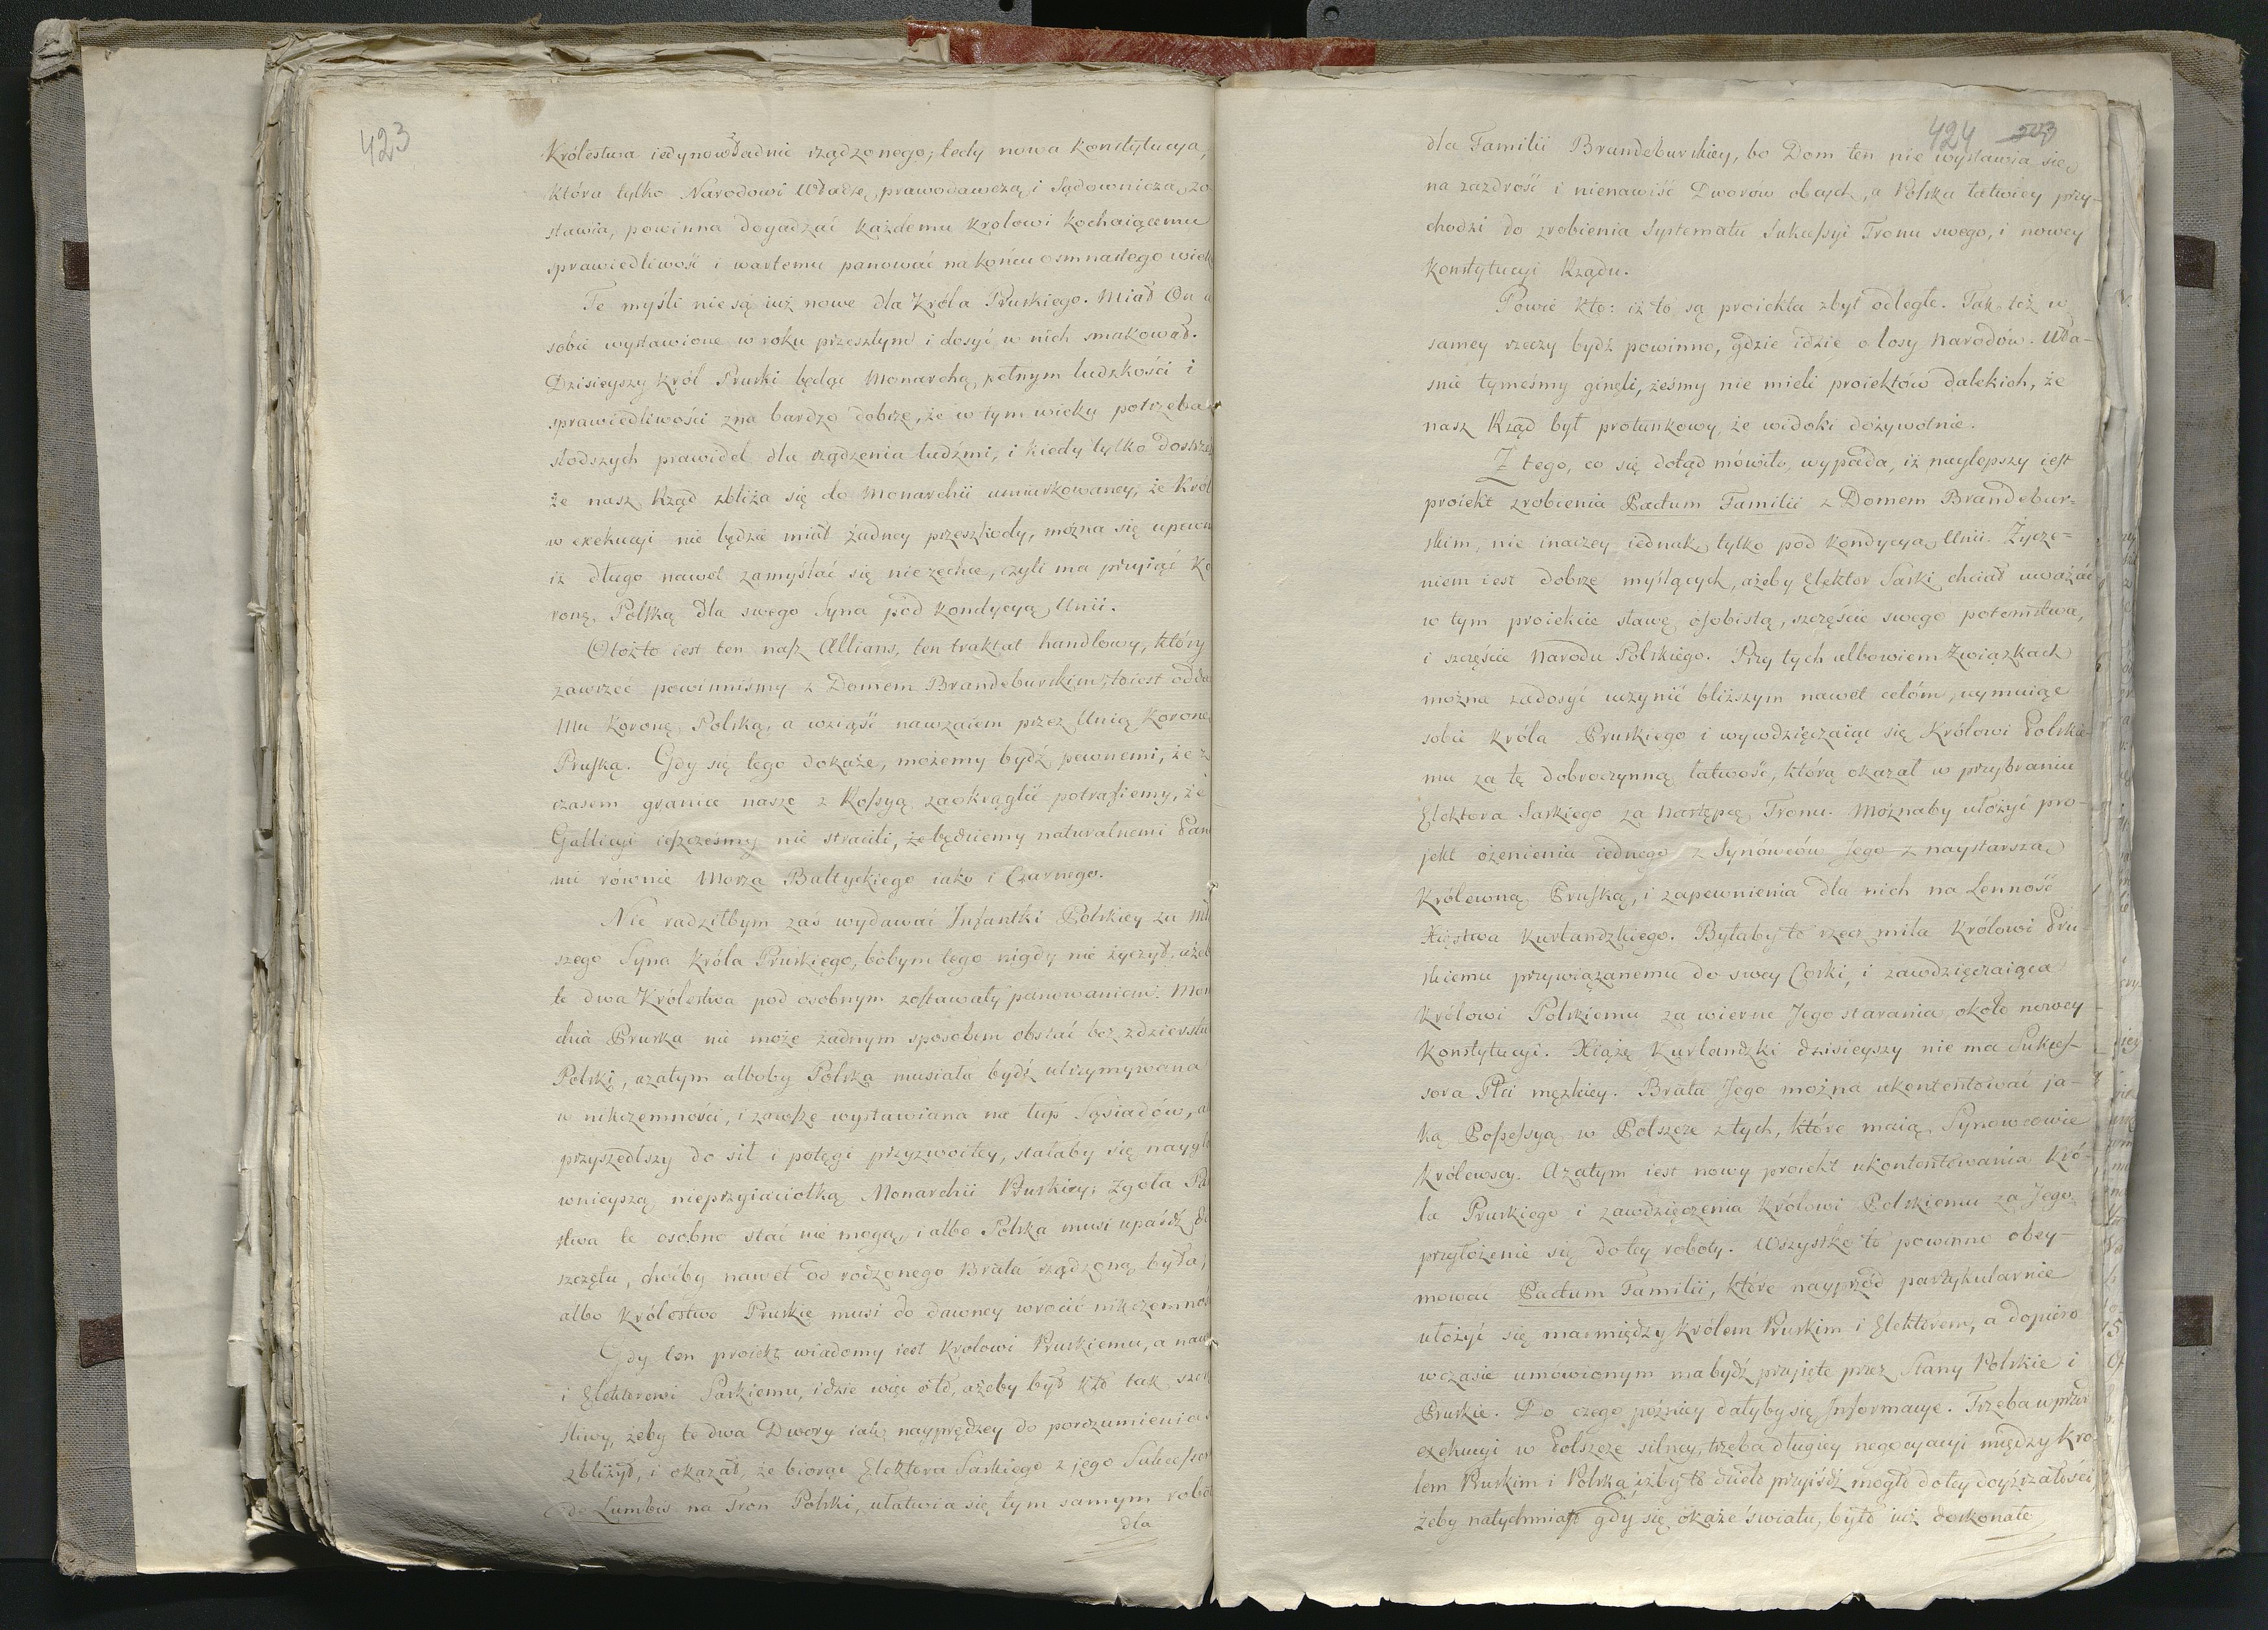 423
Królestwa iedynowładnie rządzonego; tedy nowa Konstytucya,
która tylko Narodowi Władzę prawodawczą i Sądowniczą zo
stawia, powinna dogadzać każdemu Krolowi kochaiącemu
sprawiedliwość i wartemu panować na końcu osmnastego wiek
Te myśli nie są iuż nowe dla Króla Pruskiego. Miał On
sobie wystawione w roku przeszłym i dosyć w nich smakował.
Dzisieyszy Król Pruski będąc Monarchą pełnym ludzkości i
sprawiedliwości zna bardzo dobrze, że w tym wieku potrzeba
słodszych prawideł dla rządzenia ludźmi, i kiedy tylko dostrze
że nasz Rząd zbliża się do Monarchii umiarkowaney, że Krol
w exekucyi nie będzie miał żadney przeszkody, można się upewn
iż długo nawet zamyślać się nie zechce, czyli ma przyiąć Ko
ronę Polską dla swego Syna pod kondycyą Unii.
Otóż to iest ten nasz Allians, ten traktat handlowy, który
zawrzeć powinniśmy z Domem Brandeburskim, to iest odda
Mu Koronę Polską, a wziąść nawzaiem przez Unią Koronę
Pruską. Gdy się tego dokaże, możemy bydź pewnemi, że z
czasem granice nasze z Rossyą zaokrąglić potrafiemy, że
Gallicyi ieszcześmy nie stracili, że będziemy naturalnemi Pan
mi równie Morza Baltyckiego iako i Czarnego.
Nie radziłbym zaś wydawać Infantki Polskiey za mł
szego Syna Króla Pruskiego, bobym tego nigdy nie życzył, ażeb
te dwa Królestwa pod osobnym zostawały panowaniem. Mon
chia Pruska nie może żadnym sposobem obstać bez zdzierstw
Polski, azatym alboby Polska musiała bydź utrzymywana
w nikczemności, i zawsze wystawiana na łup Sąsiadów, a
przyszedłszy do sił i potęgi przyzwoitey, stałaby się naygł
wnieyszą nieprzyiaciołką Monarchii Pruskiey; zgoła Pa
stwa te osobno stać nie mogą, i albo Polska musi upaśdź do
szczętu, choćby nawet od rodzonego Brata rządzoną była,
albo Królestwo Pruskie musi do dawney wrócić nikczemnoś
Gdy ten proiekt wiadomy iest Krolowi Pruskiemu, a naw
i Elektorowi Saskiemu, idzie więc o to, ażeby był kto tak szcz
śliwy, żeby te dwa Dwory iak nayprędzey do porozumienia
zbliżył, i okazał, że biorąc Elektora Saskiego z jego Sukcesso
de Lumbis na Tron Polski, ułatwia się tym samym robot
dla
424 203
dla Familii Brandeburskiey, bo Dom ten nie wystawia się
na zazdrość i nienawiść Dworow obcych, a Polska łatwiey przy-
chodzi do zrobienia Systematu Sukcessyi Tronu swego, i nowey
Konstytucyi Rządu.
Powie kto: iż to są proiekta zbyt odległe. Tak też w
samey rzeczy bydź powinno, gdzie idzie o losy Narodów. Wła-
śnie tymeśmy ginęli, żeśmy nie mieli proiektów dalekich, że
nasz Rząd był protunkowy, że widoki dożywotnie.
Z tego, co się dotąd mówiło, wypada, iż naylepszy iest
proiekt zrobienia Pactum Familii z Domem Brandebur=
skim, nie inaczey iednak, tylko pod kondycyą Unii. Życze=
niem iest dobrze myślących, ażeby Elektor Saski chciał uważać
w tym proiekcie sławę osobistą, szczęście swego potomstwa,
i szczęście Narodu Polskiego. Przy tych albowiem Związkach
można zadosyć uczynić bliższym nawet celóm, uymuiąc
sobie Króla Pruskiego i wywdzięczaiąc się Królowi Polskie-
mu za tę dobroczynną łatwość, którą okazał w przybraniu
Elektora Saskiego za Następcę Tronu. Możnaby ułożyć pro-
jekt ożenienia iednego z Synowców Jego z naystarszą
Królewną Pruską, i zapewnienia dla nich na Lenność
Xięstwa Kurlandzkiego. Byłaby to rzecz miła Królowi Pru-
skiemu przywiązanemu do swey Corki, i zawdzięczaiąca
Królowi Polskiemu za wierne Jego starania około nowey
Konstytucyi. Xiążę Kurlandzki dzisieyszy nie ma Sukces-
sora Płci męzkiey. Brata Jego można ukontentować ja-
ką Possessyą w Polszcze z tych, które maią Synowcowie
Królewscy. Azatym iest nowy proiekt ukontentowania Kró-
la Pruskiego i zawdzięczenia Królowi Polskiemu za Jego
przyłożenie się do tey roboty. Wszystko to powinno obey-
mować Pactum Familii, które nayprzód partykularnie
ułożyć się ma między Królem Pruskim i Elektorem, a dopiero
w czasie umówionym ma bydź przyięte przez Stany Polskie i
Pruskie. Do czego poźniey dałyby się Informacye. Trzeba wprzód
exekucyi w Polszcze silney, trzeba długiey negocyacyi między Kró-
lem Pruskim i Polską, iżby to dzieło przyiśdź mogło do tey doyźrzałości,
żeby natychmiast gdy się okaże światu, było iuż doskonałe